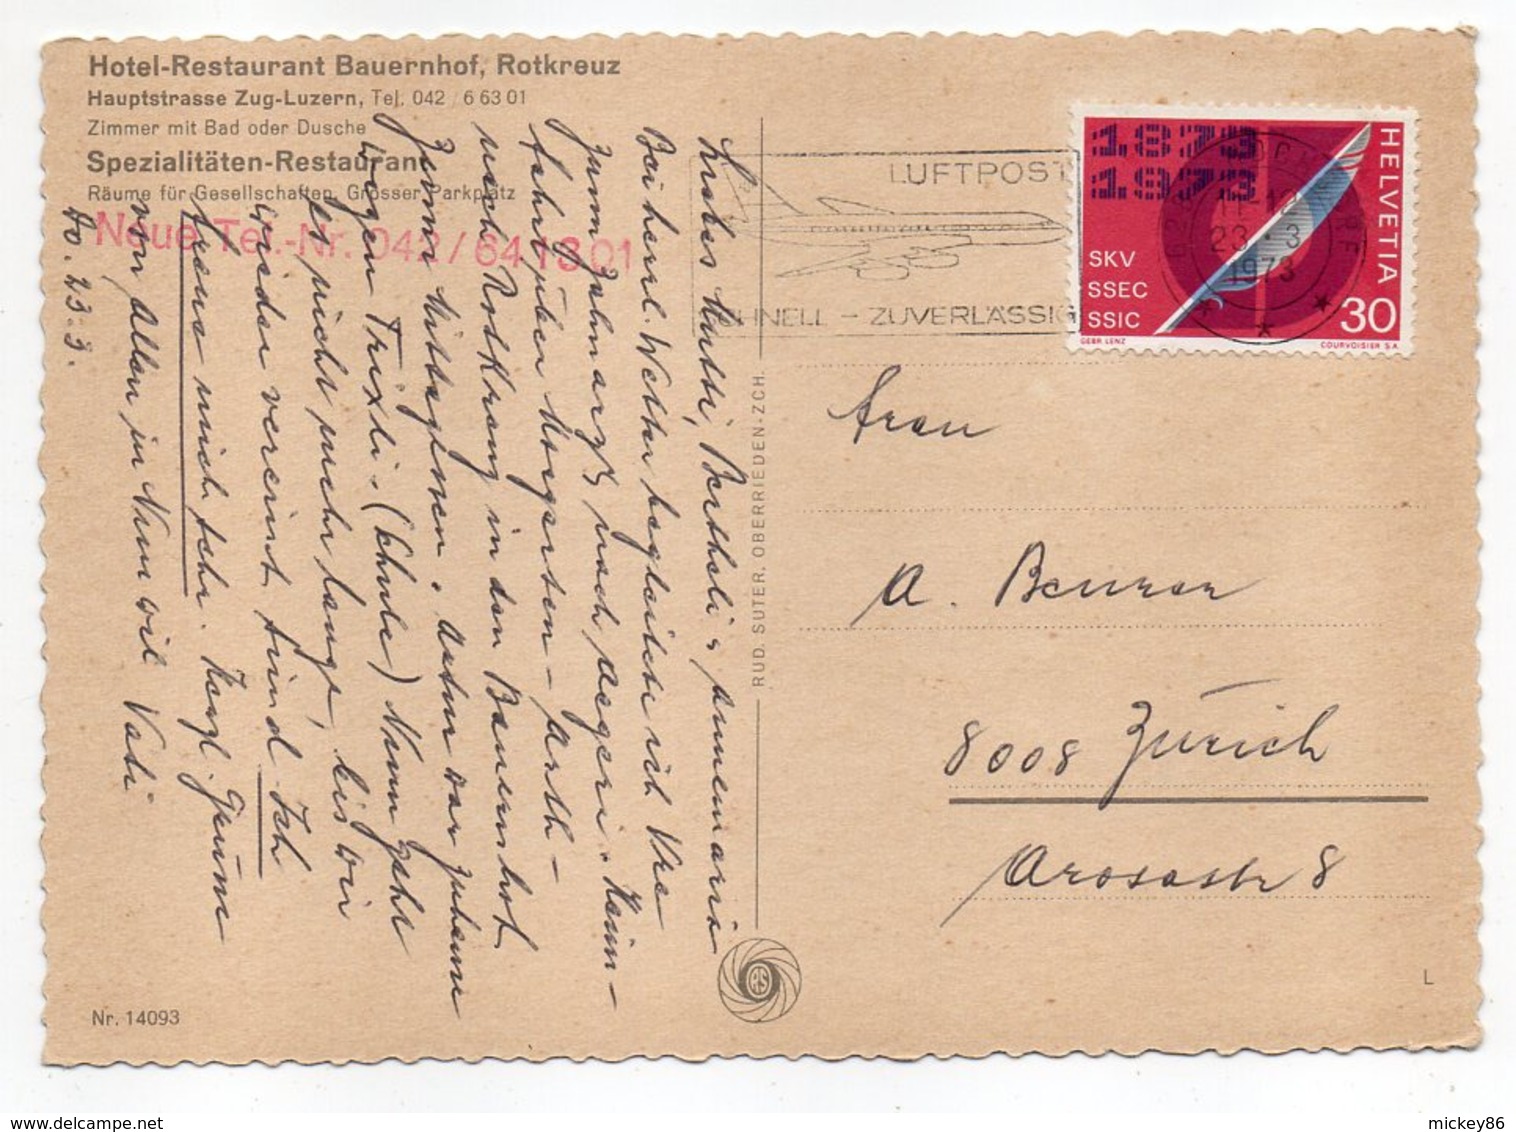 Hotel-Restaurant Bauernhof, Rotkreuz
Hauptstrasse Zug-Luzern, Tel. 042 / 6 63 01
Zimmer mit Bad oder Dusche
Spezialitäten-Restaurant
Räume für Gesellschaften, Grosser Parkplatz
Neue Tel.-Nr. 042/64 13 01
Liebes Mutti, Bertheli, Annemarie
Bei herrl. Wetter begleitete ich
zum Zahnarzt nach Aegeri. Heim-
fahrt über Morgarten - Arth -
nach Rotkreuz in den Bauernhof
zum Mittagessen.
wegen Trixli. (Schule) Nun geht
es nicht mehr lange, bis wir
wieder vereint sind. Ich
freue mich sehr. Herzl. Grüsse
von allen in Nunwil Vati
Do. 23.3.
Nr. 14093
RUD. SUTER, OBERRIEDEN-ZCH.
RS
LUFTPOST
SCHNELL - ZUVERLÄSSIG
11-12
23.3
1973
1873
1973
SKV
SSEC
SSIC
HELVETIA
30
GEBR. LENZ
COURVOISIER S.A.
Frau
A.
8008 Zürich
Arosastr 8
L
mickey86